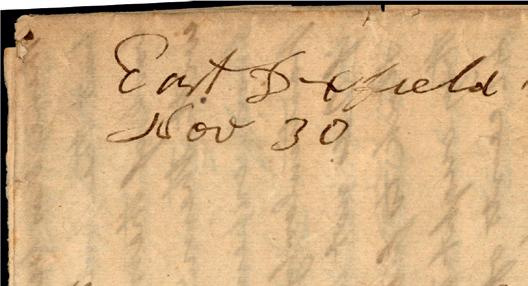 East Dixfield
Nov 30